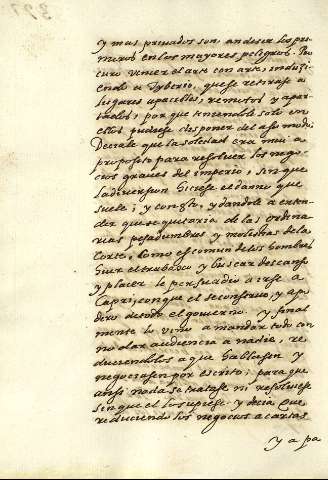 y mas priuados son, an de ser los pri
meros en los mayores peligros. Pro
curo vencer el arte con arte, induzi
endo a Tyberio, que se retirase a
lugares apacibles, remotos y apar
tados, por que teniendole solo en
ellos pudiese disponer del a su modo.
Deciale que la soledad era mui a
proposito para resoluer los nego
cios graues del imperio, sin que
la diuersion hiciese el daño que
suele; y con esto, y dandole a enten
der que se quitaria de las ordena
rias pesadumbres y molestias de la
Corte, como es comun de los hombres
huir el trabajo y buscar descanso
y placer le persuadio a irse a
Capri, con que el se conseruo, y apo
dero de todo el gouierno. y final
mente lo vino a mandar todo con
no dar audiencia a nadie, re
duciendolos a que hablasen y
negociasen por escrito; para que
ansi nada se tratase ni resoluiese
sin que el lo supiese. y decia que
reduciendo los negocios a cartas
y a pa